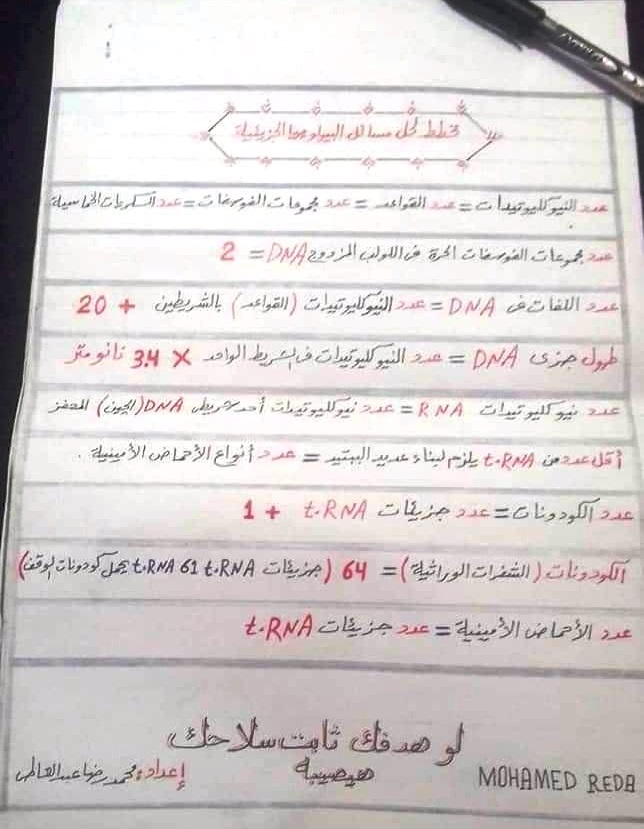 مخطط لحل مسائل البيولوجيا الجزيئية
عدد النيوكليوتيدات = عدد القواعد = عدد مجموعات الفوسفات = عدد السكريات الخماسية
عدد مجموعات الفوسفات الحرة فى اللولب المزدوج DNA = 2
عدد اللفات فى DNA = عدد النيوكليوتيدات (القواعد) بالشريطين ÷ 20
طول جزئ DNA = عدد النيوكليوتيدات فى الشريط الواحد × 3.4 نانومتر
عدد نيوكليوتيدات RNA = عدد نيوكليوتيدات أحد شريطى DNA (الجين) المحفز
أقل عدد من t.RNA يلزم لبناء عديد الببتيد = عدد أنواع الأحماض الأمينية .
عدد الكودونات = عدد جزيئات t.RNA + 1
الكودونات (الشفرات الوراثية) = 64 (جزيئات t.RNA 61 t.RNA يحمل كودونات الوقف)
عدد الأحماض الأمينية = عدد جزيئات t.RNA
لو هدفك ثابت سلاحك
هيصيبة
إعداد: محمد رضا عبدالعاطى
MOHAMED REDA